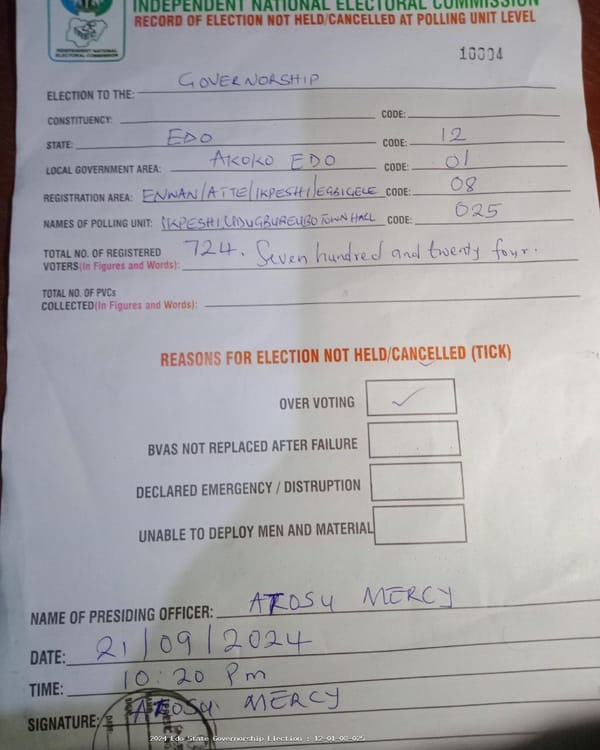 INDEPENDENT NATIONAL ELECTORAL COMMISSION
RECORD OF ELECTION NOT HELD/CANCELLED AT POLLING UNIT LEVEL
INDEPENDENT NATIONAL
ELECTORAL COMMISSION
10004
ELECTION TO THE: GOVERNORSHIP
CONSTITUENCY: CODE:
STATE: EDO CODE: 12
LOCAL GOVERNMENT AREA: AKOKO EDO CODE: 01
REGISTRATION AREA: ENWAN/ATTE/IKPESHI/EGBIGELE CODE: 08
NAMES OF POLLING UNIT: IKPESHI, TOWN HALL CODE: 025
TOTAL NO. OF REGISTERED
VOTERS(In Figures and Words): 724. Seven hundred and twenty four.
TOTAL NO. OF PVCs
COLLECTED(In Figures and Words):
REASONS FOR ELECTION NOT HELD/CANCELLED (TICK)
OVER VOTING ✓
BVAS NOT REPLACED AFTER FAILURE
DECLARED EMERGENCY / DISTRUPTION
UNABLE TO DEPLOY MEN AND MATERIAL
NAME OF PRESIDING OFFICER: MERCY
DATE: 21/09/2024
TIME: 10:20 Pm
SIGNATURE: MERCY
2024 Edo State Governorship Election : 12-01-08-025